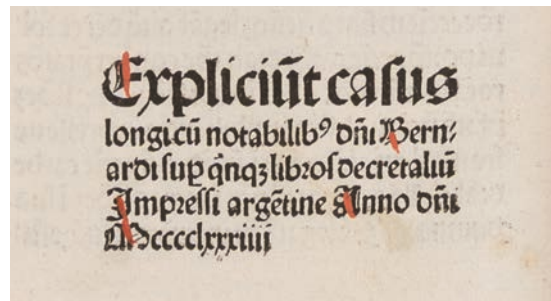 Expliciūt casus
longi cū notabilibꝰ dn̄i Bern⸗
ardi suꝑ q̄nqꝫ libros decretaliū
Impressi argētine Anno dn̄i
Mcccclxxxiiii